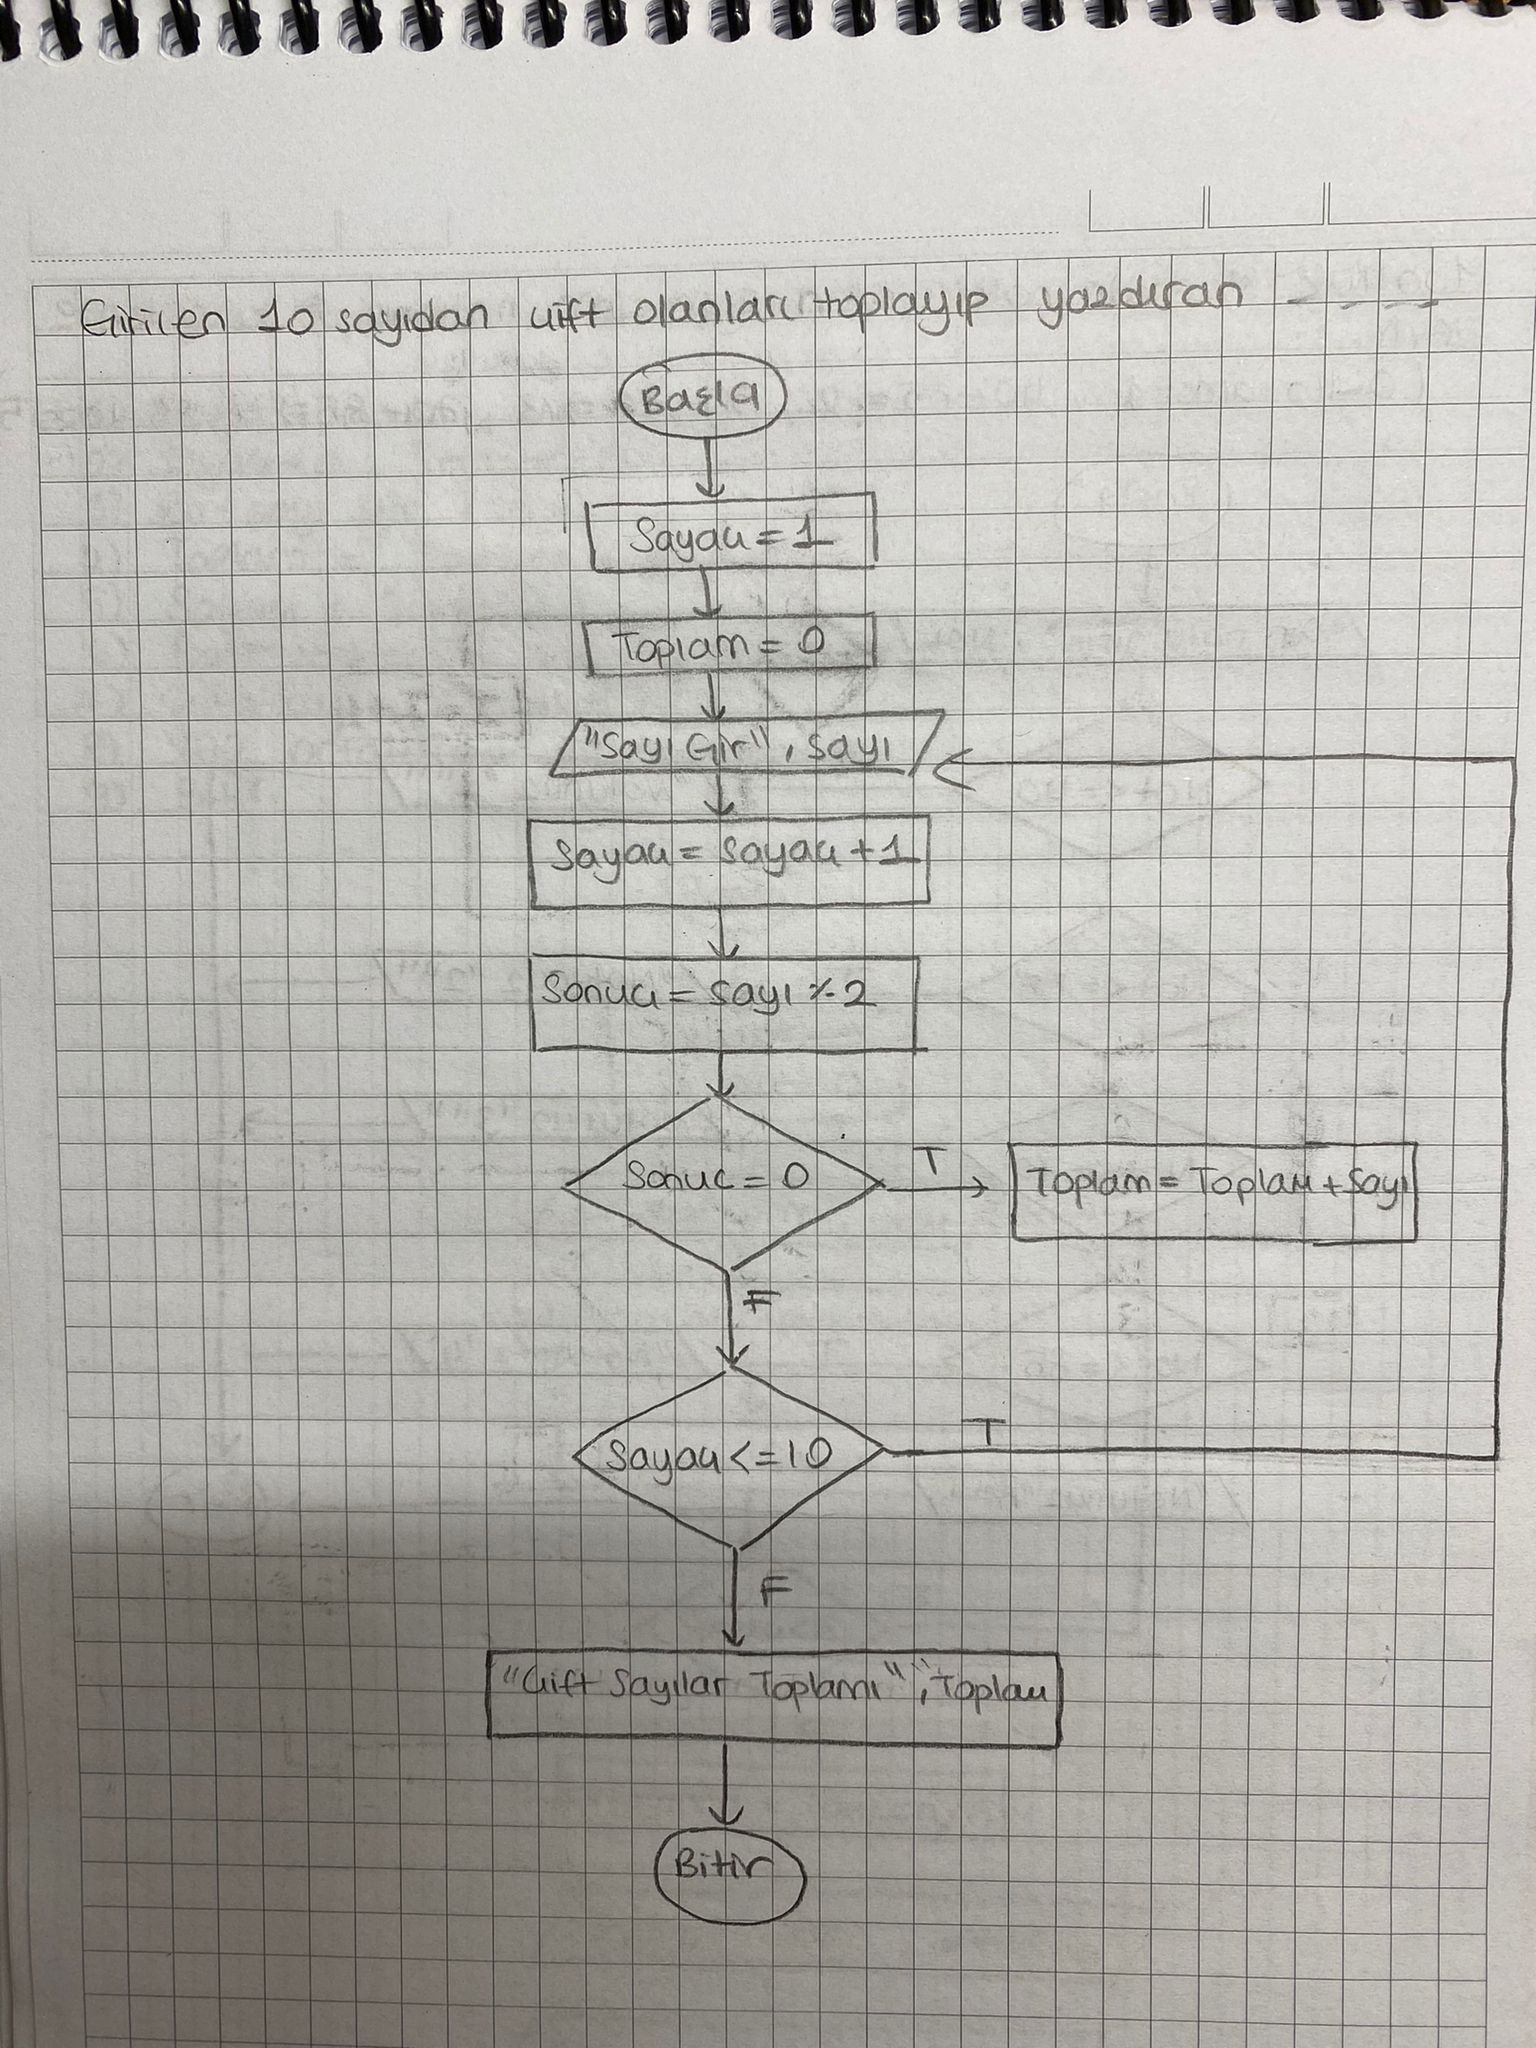 Girilen 10 sayıdan çift olanları toplayıp yazdıran - - - -
Başla
Sayaç = 1
Toplam = 0
"Sayı Gir", sayı
Sayaç = sayaç + 1
Sonuç = sayı % 2
Sonuc = 0
T
Toplam = Toplam + sayı
F
Sayaç <= 10
T
F
"Çift Sayılar Toplamı", Toplam
Bitir